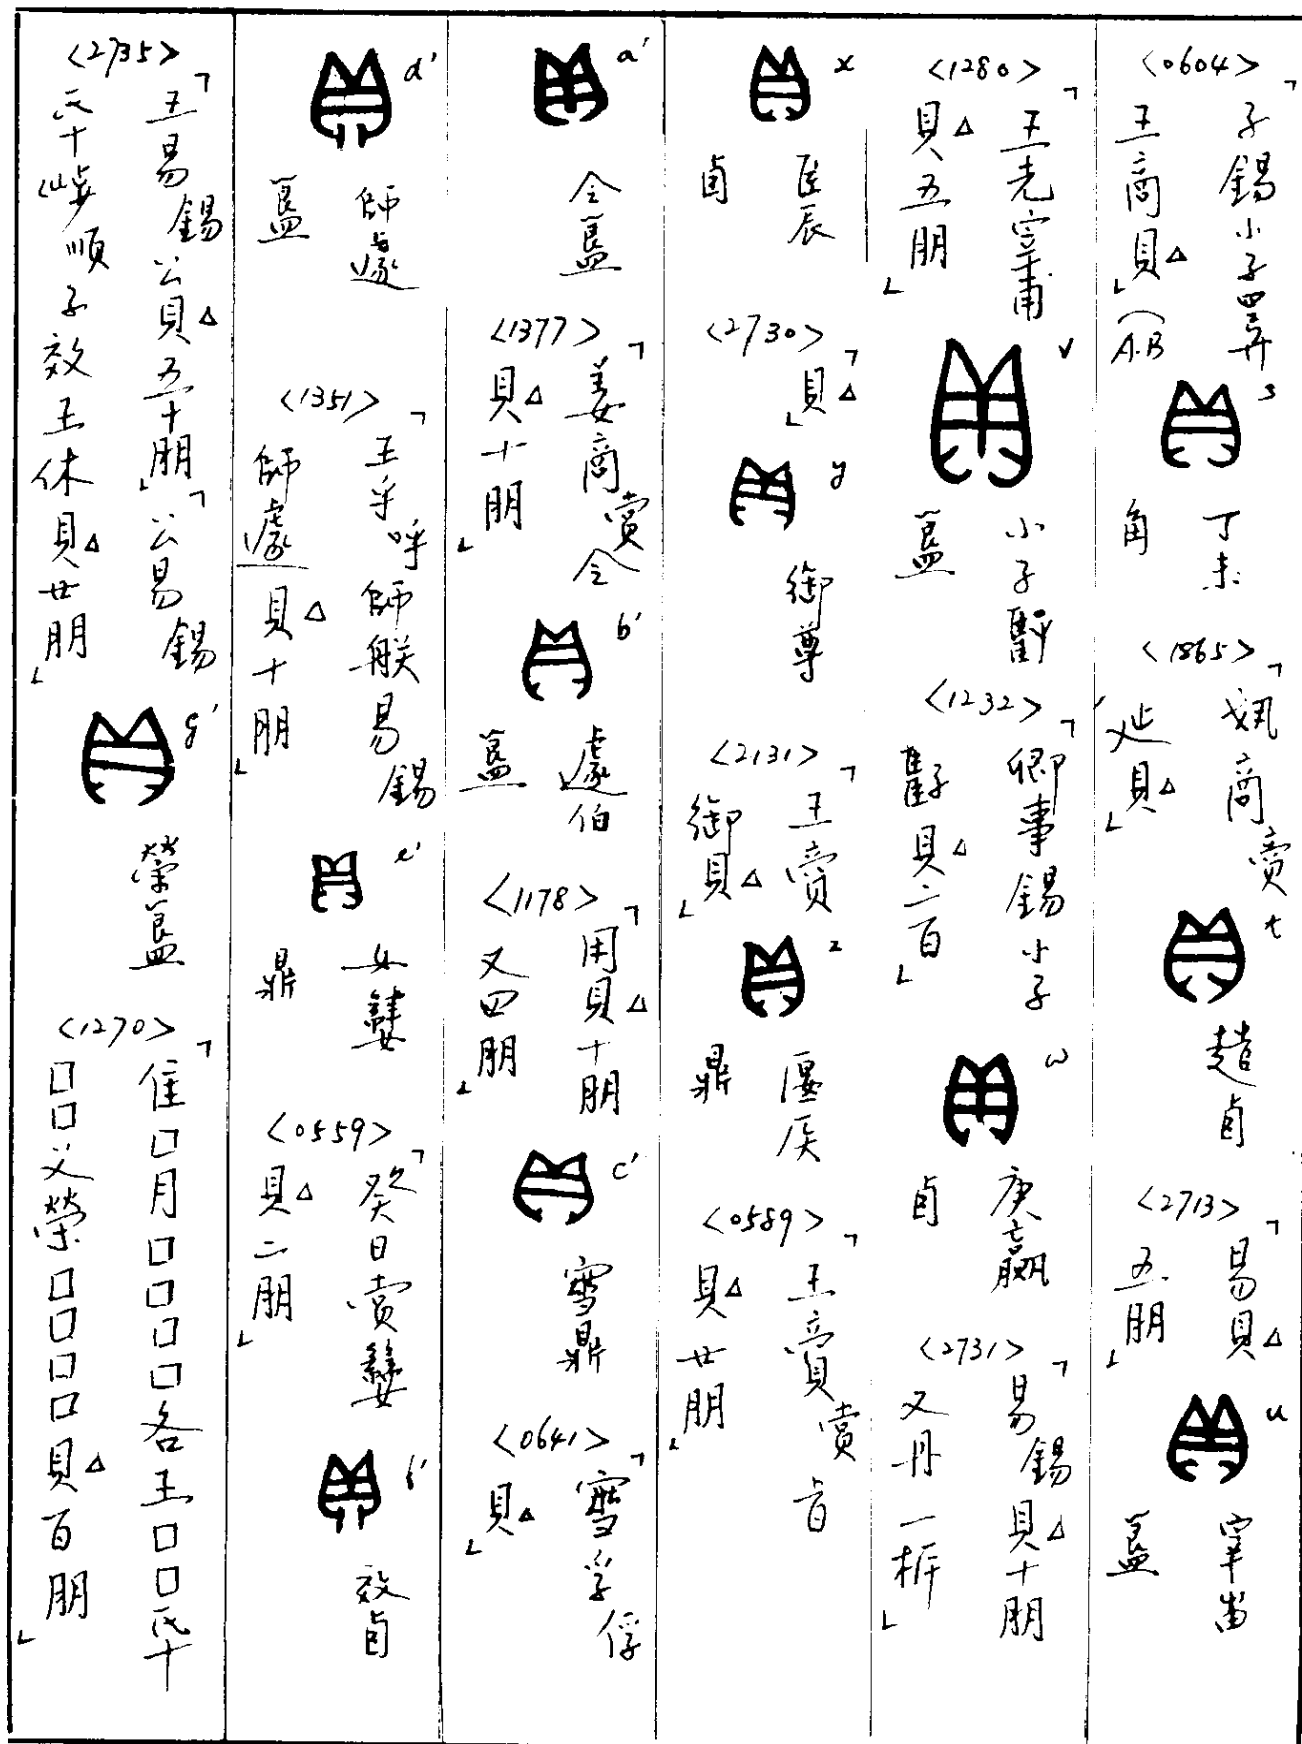 <0604>
「子錫小子
王商貝」(A.B
s
丁未
角
<1865>
「娥商賣
貝」
t
趞卣
<2713>
「易貝
五朋」
u
宰甾
簋
<1280>
「王光宰甫
貝五朋」
v
小子
簋
<1232>
「卿事錫小子
貝二百」
w
庚嬴
卣
<2731>
「易錫貝十朋
又丹一柝」
x
臣辰
卣
<2730>
「貝」
y
御尊
<2131>
「王賣
御貝」
z
匽侯
鼎
<0589>
「王賣賞旨
貝廿朋」
a'
令簋
<1377>
「姜商賞令
貝十朋」
b'
遽伯
簋
<1178>
「用貝十朋
又四朋」
c'
鼎
<0641>
「孚俘
貝」
d'
師遽
簋
<1351>
「王乎呼師朕易錫
師遽貝十朋」
e'
女
鼎
<0559>
「癸日賞
貝二朋」
f'
效卣
<2735>
「王易錫公貝五十朋」「公易錫
氒順子效王休貝廿朋」
g'
榮簋
<1270>
「隹口月口口口口各王口口氒
口口父榮口口口口貝百朋」